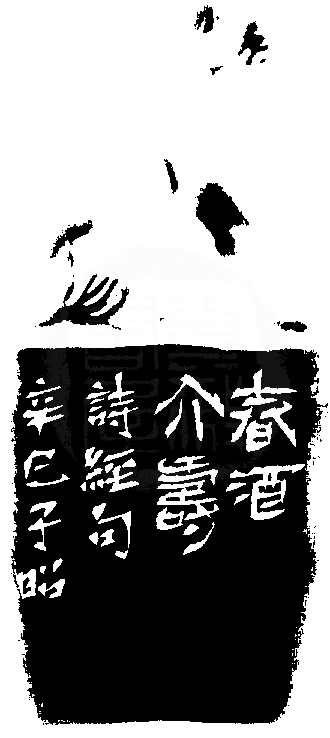 春酒
介壽
詩經句
辛巳子昭